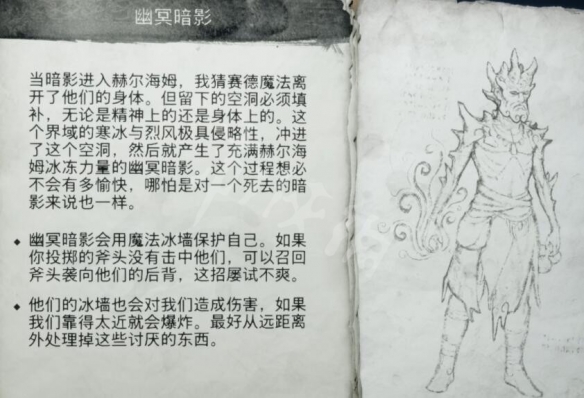 幽冥暗影
当暗影进入赫尔海姆，我猜赛德魔法离
开了他们的身体。但留下的空洞必须填
补，无论是精神上的还是身体上的。这
个界域的寒冰与烈风极具侵略性，冲进
了这个空洞，然后就产生了充满赫尔海
姆冰冻力量的幽冥暗影。这个过程想必
不会有多愉快，哪怕是对一个死去的暗
影来说也一样。
◆ 幽冥暗影会用魔法冰墙保护自己。如果
你投掷的斧头没有击中他们，可以召回
斧头袭向他们的后背，这招屡试不爽。
◆ 他们的冰墙也会对我们造成伤害，如果
我们靠得太近就会爆炸。最好从远距离
外处理掉这些讨厌的东西。